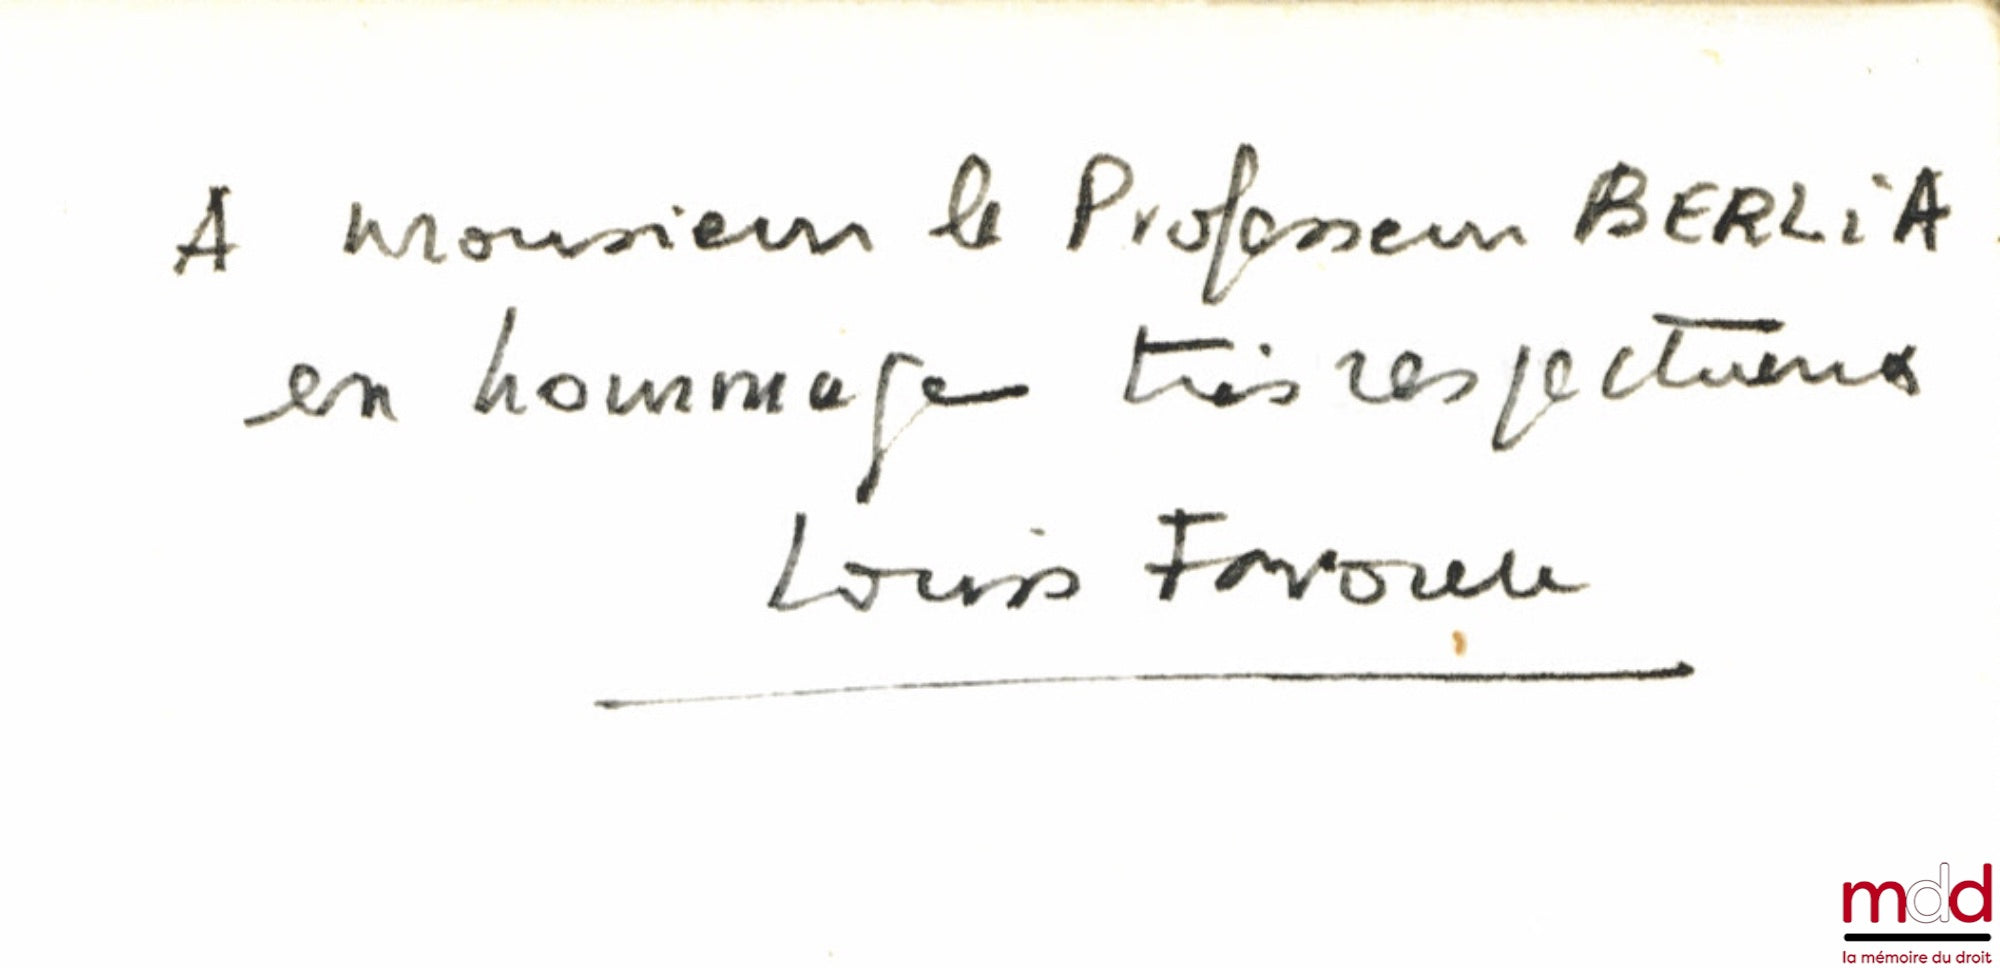 A monsieur le Professeur BERLiA
en hommage très respectueux
Louis Favoreu
mdd
la mémoire du droit